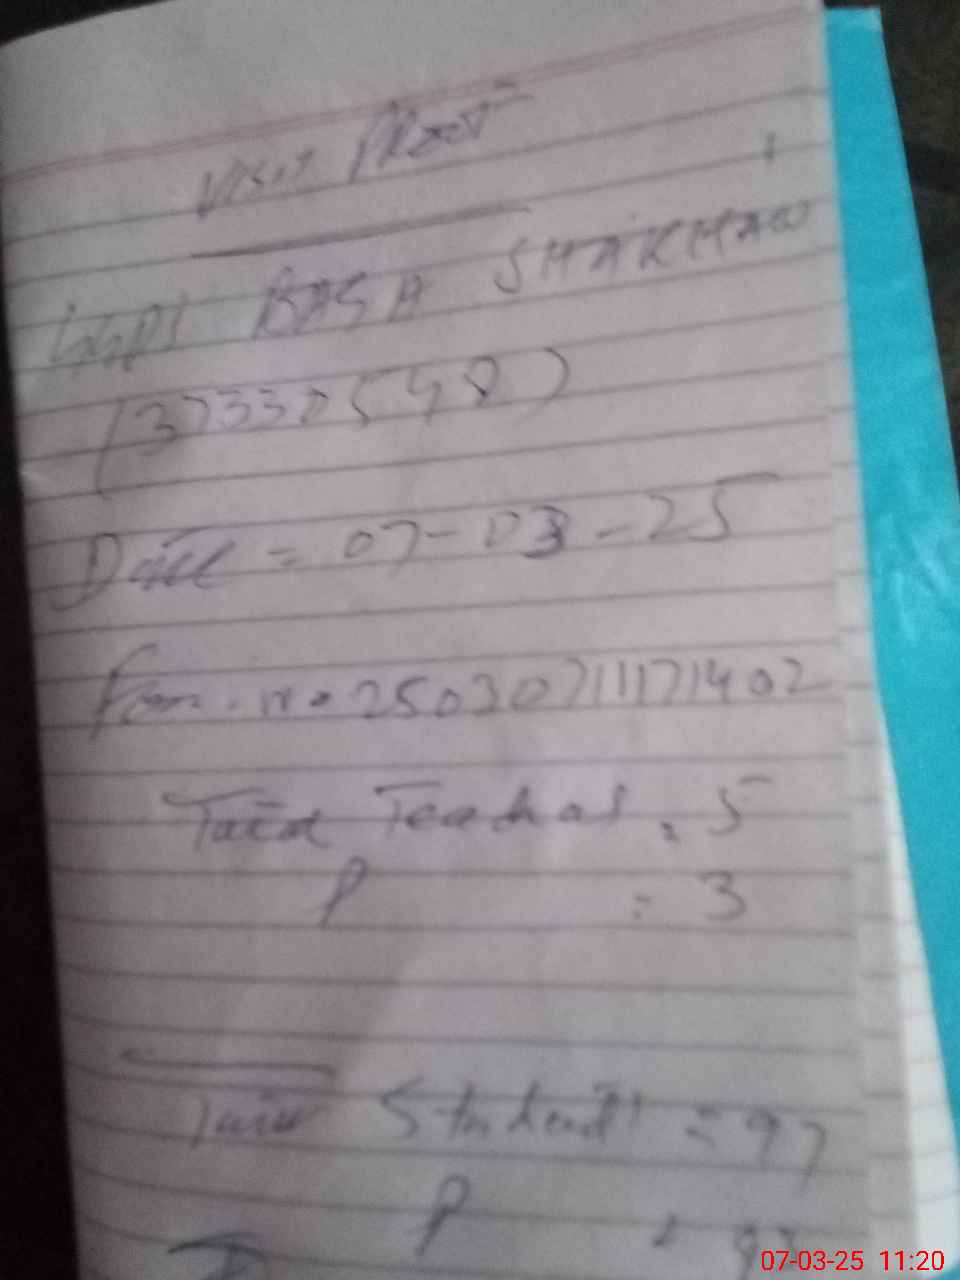 Visit Proof
GGPS BASA SHAKHAN
(37330548)
Date = 07-03-25
Form. no 25030711171402
Total Teachers = 5
P = 3
Total Students = 97
P
07-03-25 11:20